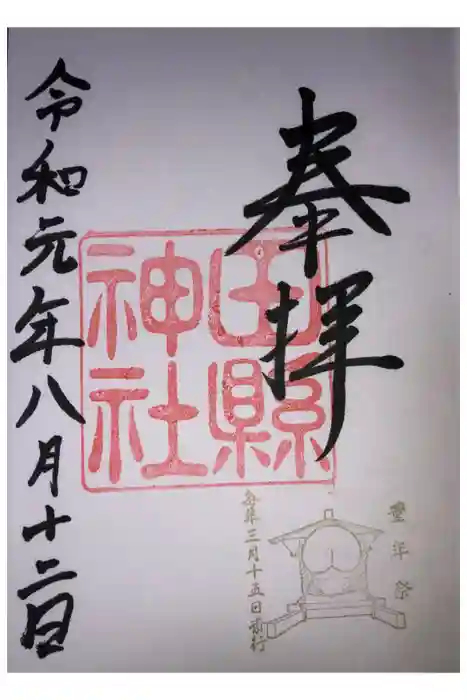 奉拝
田縣
神社
豊年祭
毎年三月十五日斎行
令和元年八月十二日